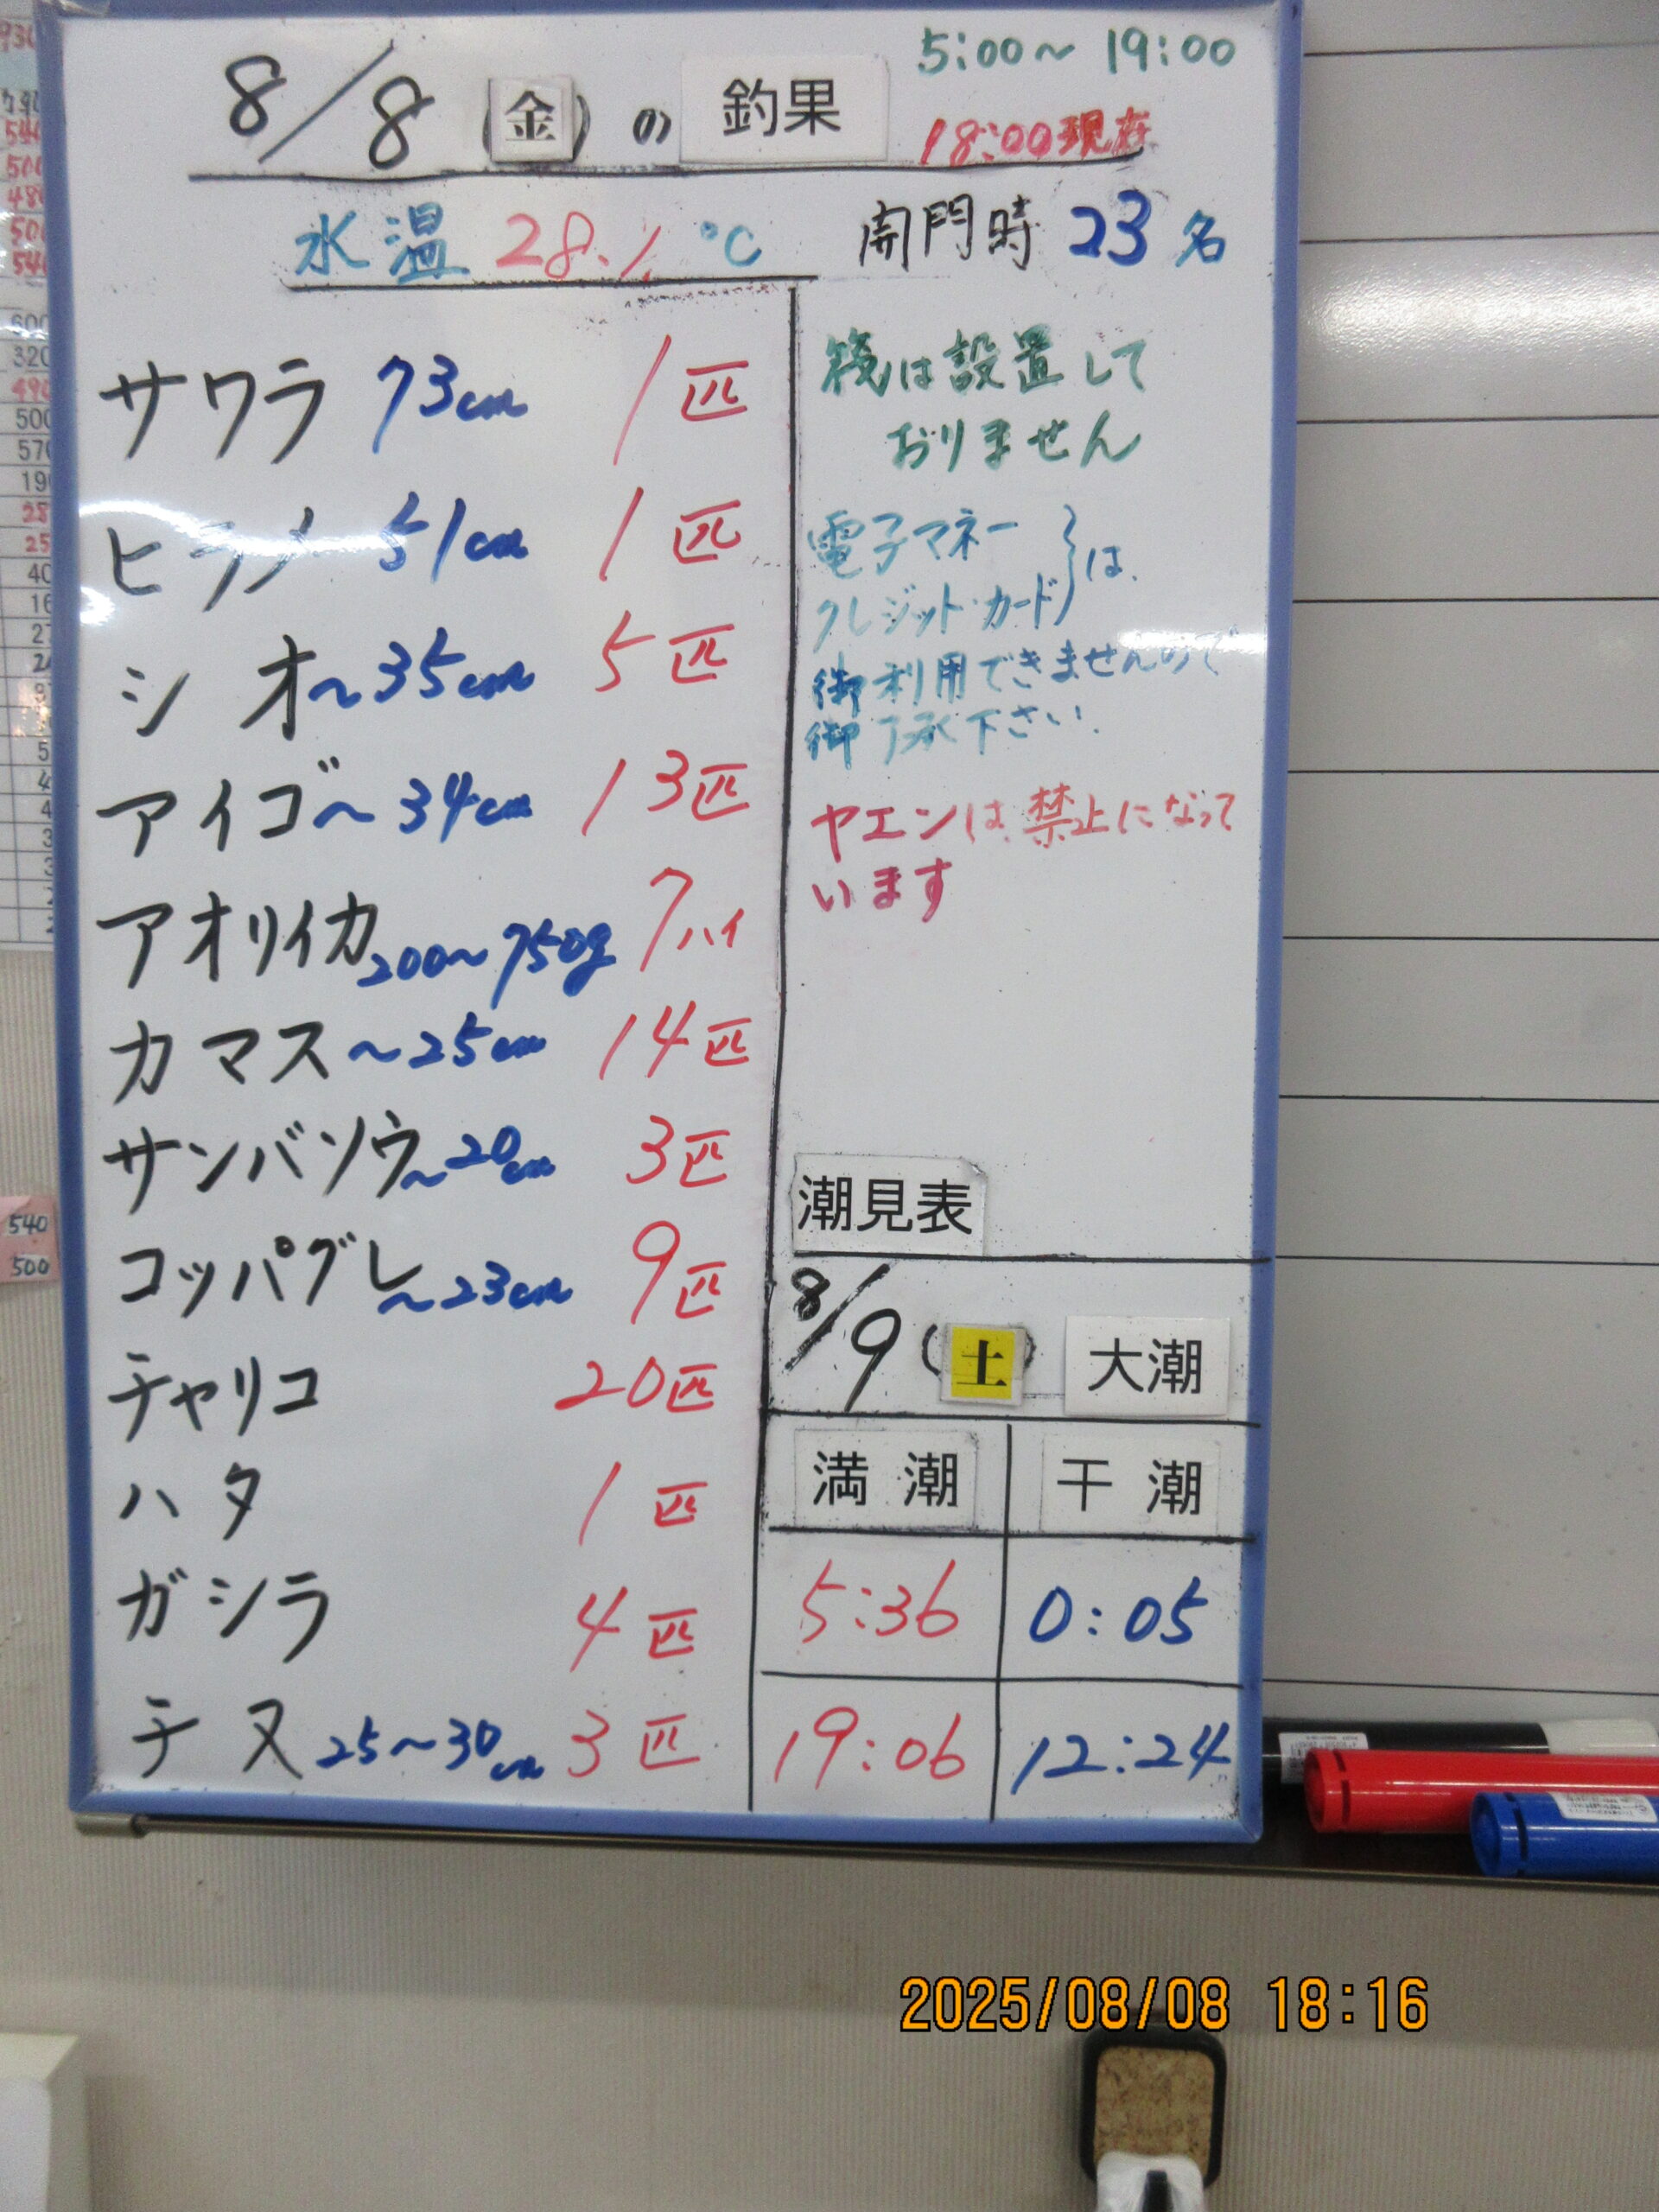 5:00～19:00
8/8(金)の釣果
18:00現在
水温 28.1℃
開門時 23名
サワラ 73cm 1匹
ヒラメ 51cm 1匹
シオ～35cm 5匹
アイゴ～34cm 13匹
アオリイカ200～750g 7ハイ
カマス～25cm 14匹
サンバソウ～20cm 3匹
コッパグレ～23cm 9匹
チャリコ 20匹
ハタ 1匹
ガシラ 4匹
チヌ 25～30cm 3匹
筏は設置して
おりません
電子マネー
クレジット・カード}は、
御利用できませんので
御了承下さい.
ヤエンは、禁止になって
います
潮見表
8/9(土) 大潮
満潮 干潮
5:36 0:05
19:06 12:24
540
500
2025/08/08 18:16